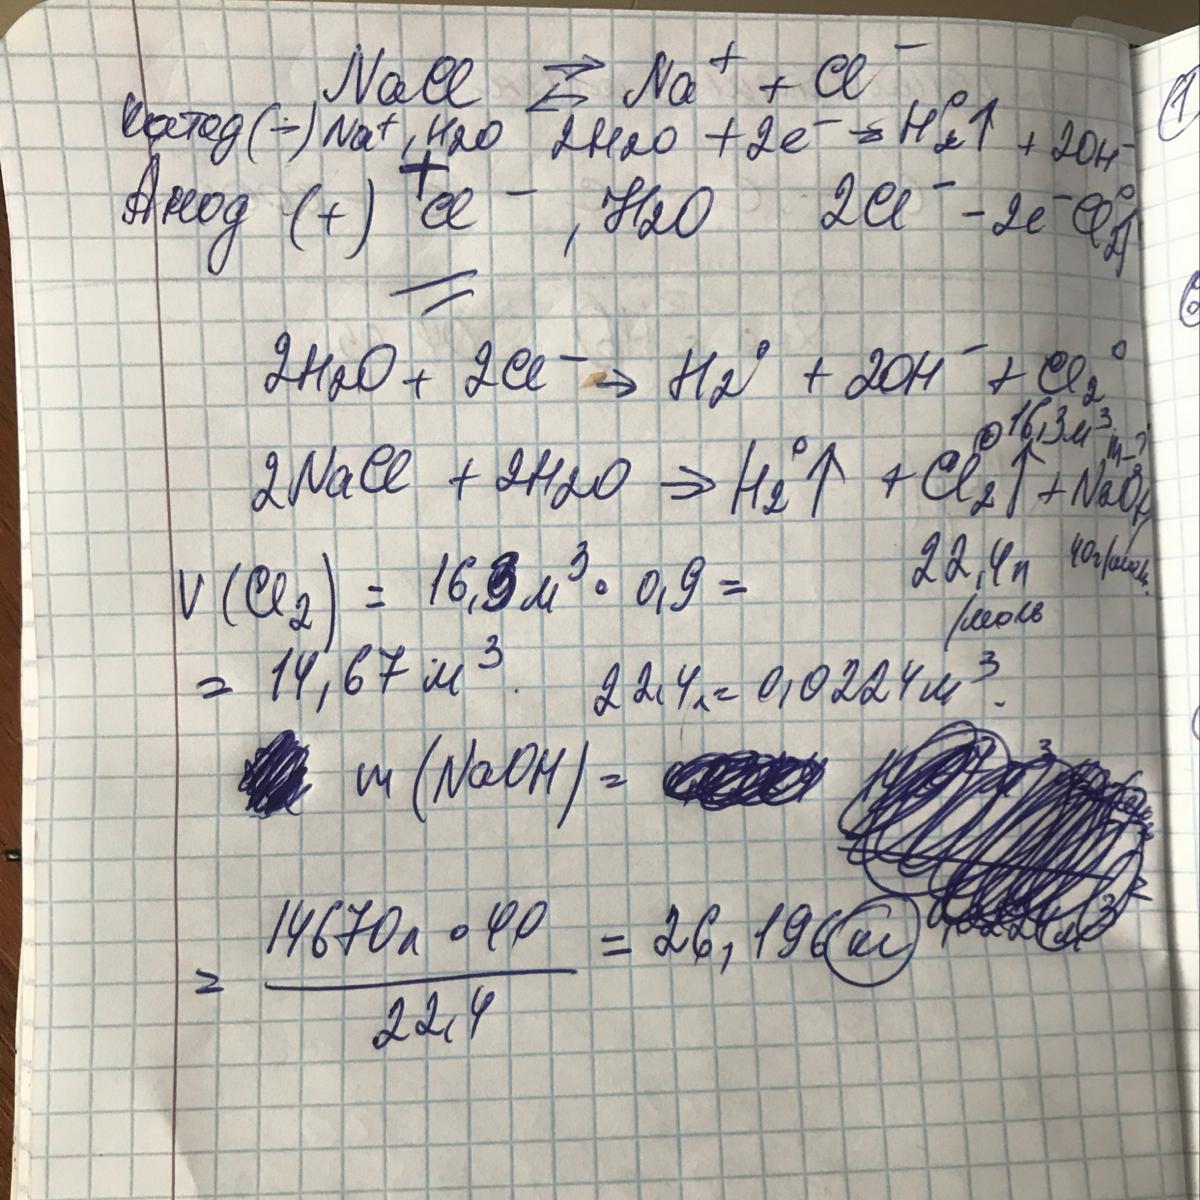 NaCl ⇄ Na⁺ + Cl⁻
Катод (-) Na⁺, H2O 2H2O + 2e⁻ → H₂⁰↑ + 2OH⁻
Анод (+) Cl⁻, H2O 2Cl⁻ - 2e⁻ Cl₂⁰↑
2H2O + 2Cl⁻ → H₂⁰ + 2OH⁻ + Cl₂⁰
16,3 м³ m-?
2NaCl + 2H2O → H₂⁰↑ + Cl₂⁰↑ + NaOH
22,4 л/моль 40г/моль
V(Cl₂) = 16,3 м³ · 0,9 =
= 14,67 м³. 22,4л = 0,0224 м³.
m(NaOH) =
= 14670л · 40 / 22,4 = 26,196 кг